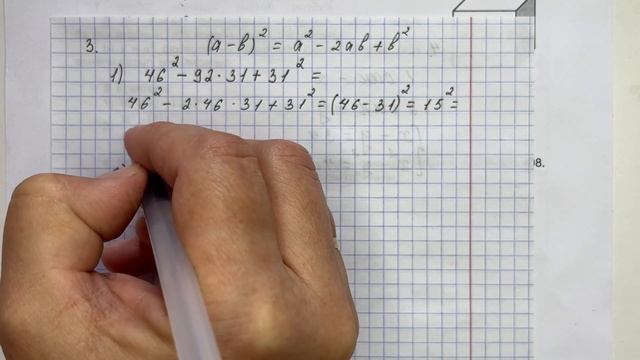 3. (a-b)² = a² - 2ab + b²
1) 46² - 92 · 31 + 31² =
46² - 2 · 46 · 31 + 31² = (46 - 31)² = 15² =
18.